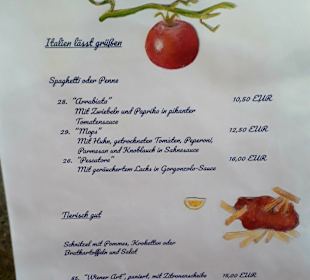 Italien lässt grüßen
Spaghetti oder Penne
28. "Arrabiata" 10,50 EUR
Mit Zwiebeln und Paprika in pikanter
Tomatensauce
29. "Mops" 12,50 EUR
Mit Huhn, getrockneten Tomaten, Peperoni,
Parmesan und Knoblauch in Sahnesauce
26. "Pescatore" 16,00 EUR
Mit geräuchertem Lachs in Gorgonzola-Sauce
Tierisch gut
Schnitzel mit Pommes, Kroketten oder
Bratkartoffeln und Salat
"Wiener Art", paniert, mit Zitronenscheibe 15,00 EUR